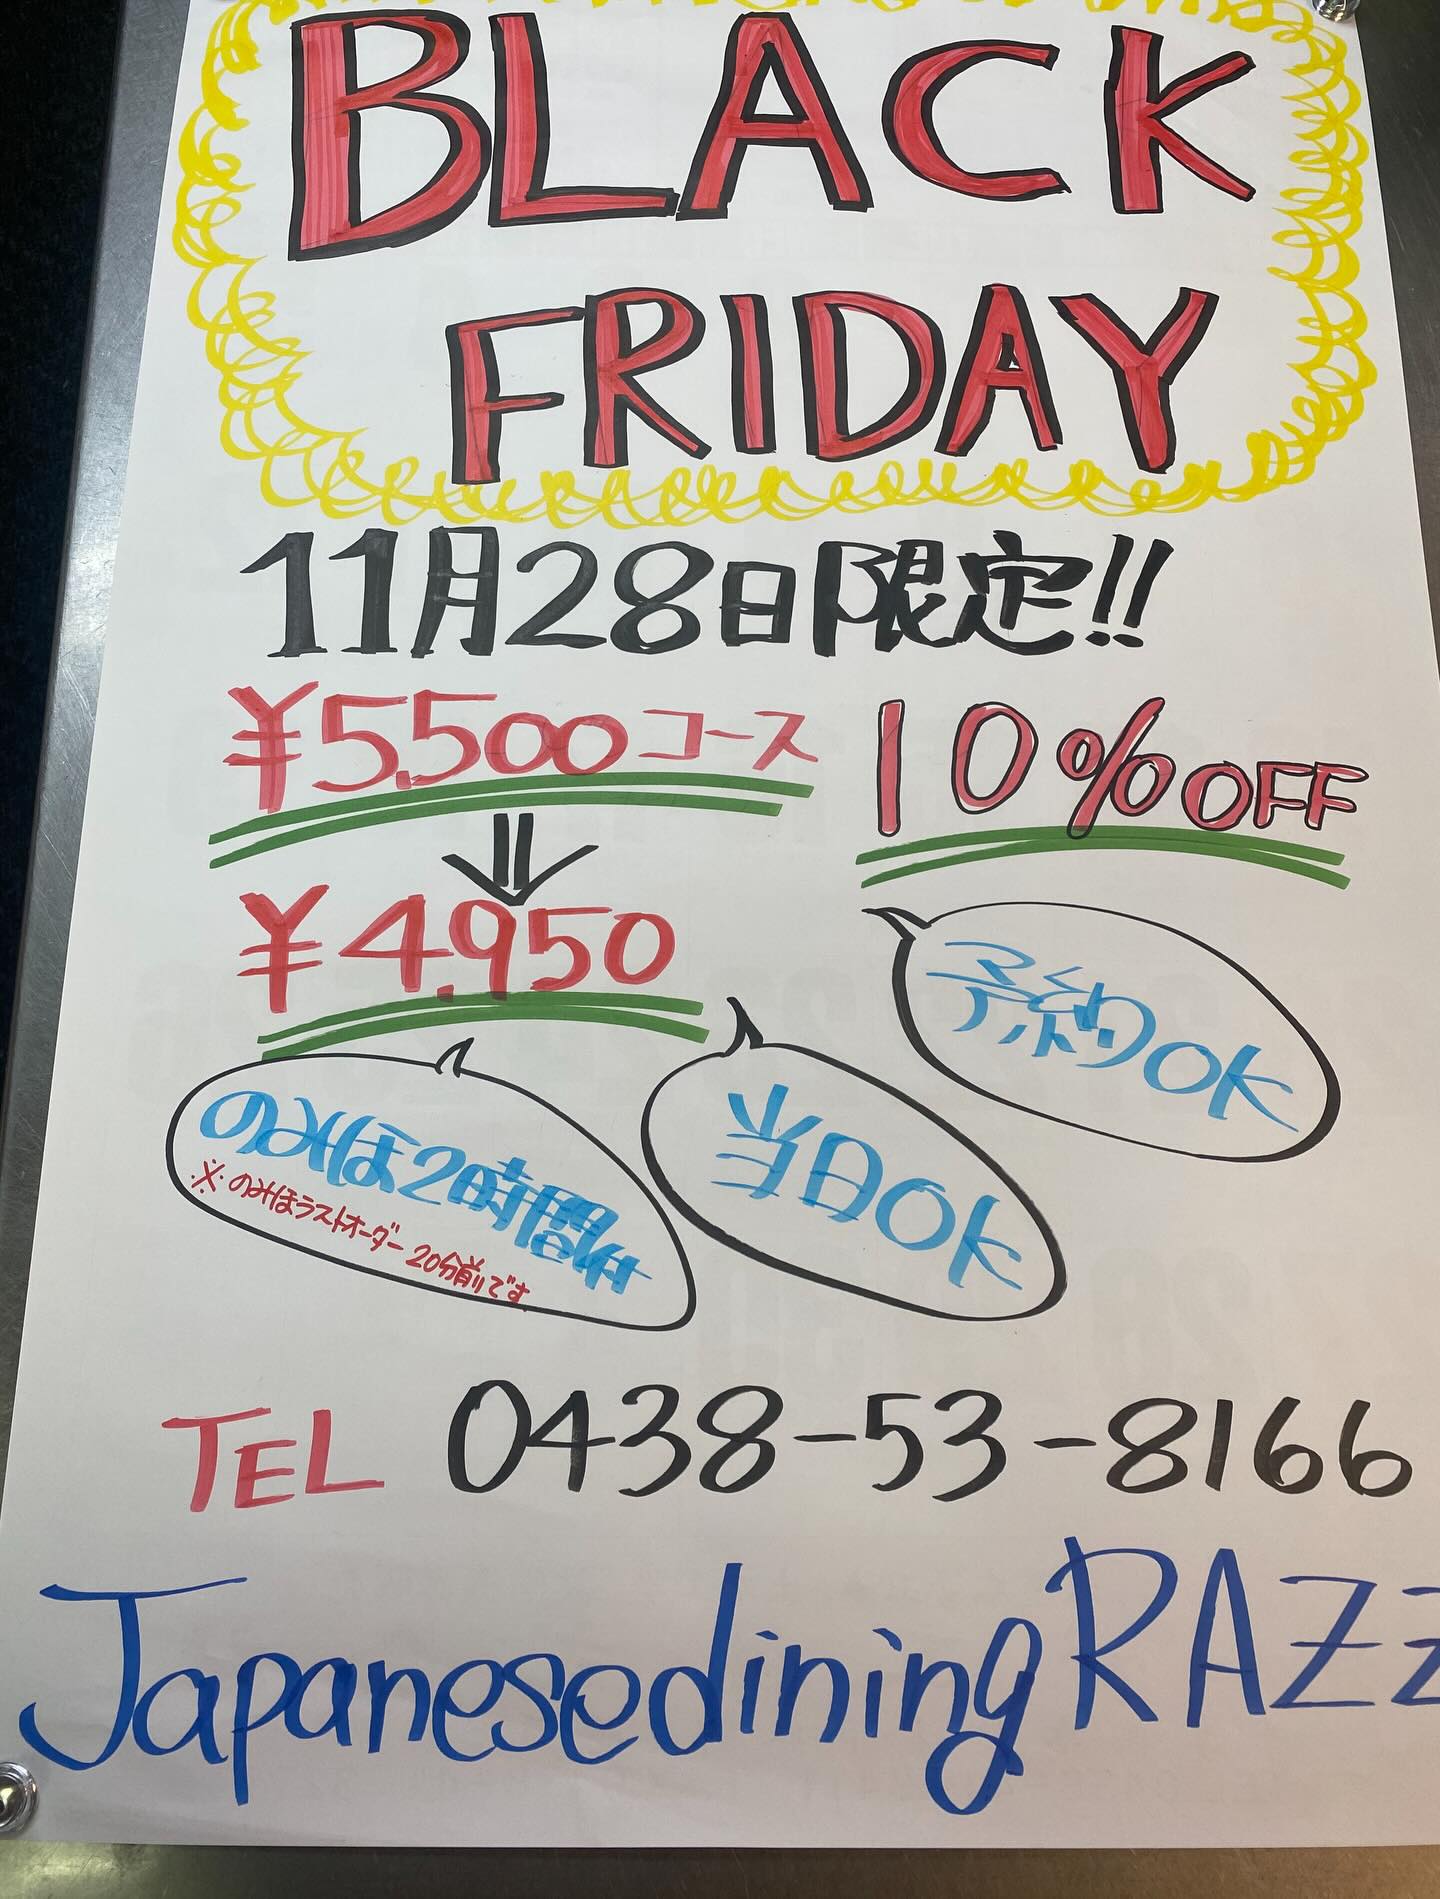 BLACK
FRIDAY
11月28日限定!!
¥5,500コース 10%OFF
¥4,950
予約OK
当日OK
のみほ2時間付
※のみほラストオーダー 20分前です
TEL 0438-53-8166
Japanesedining RAZZ